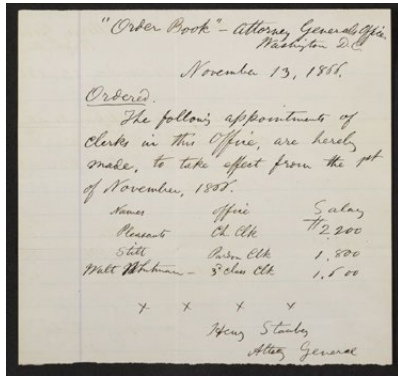 "Order Book" - Attorney General's Office.
Washington D.C.
November 13, 1866.
Ordered.
The following appointments of
clerks in this Office, are hereby
made, to take effect from the 1st
of November, 1866.
Names Office Salary
Pleasants Ch. Clk $2,200
Stitt Pardon Clk 1,800
Walt Whitman - 3d class Clk 1,600
x x x x
Henry Stanbery
Attey General